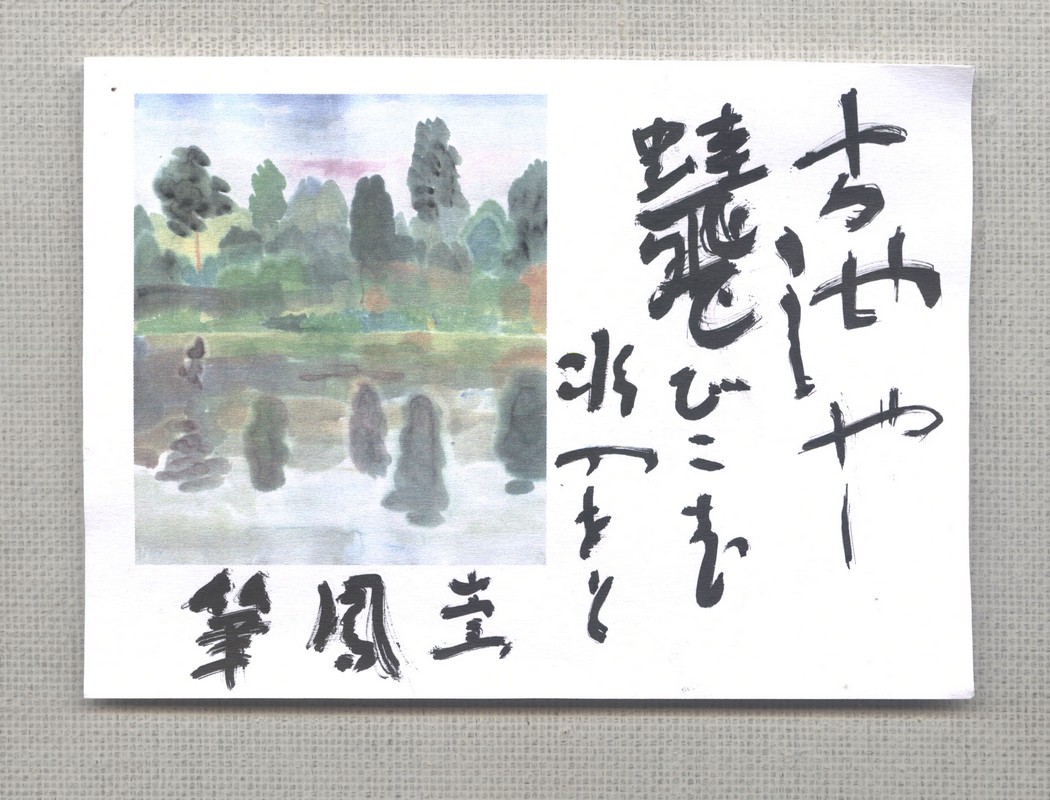 古池や
蛙飛びこむ
水のおと
圭風筆